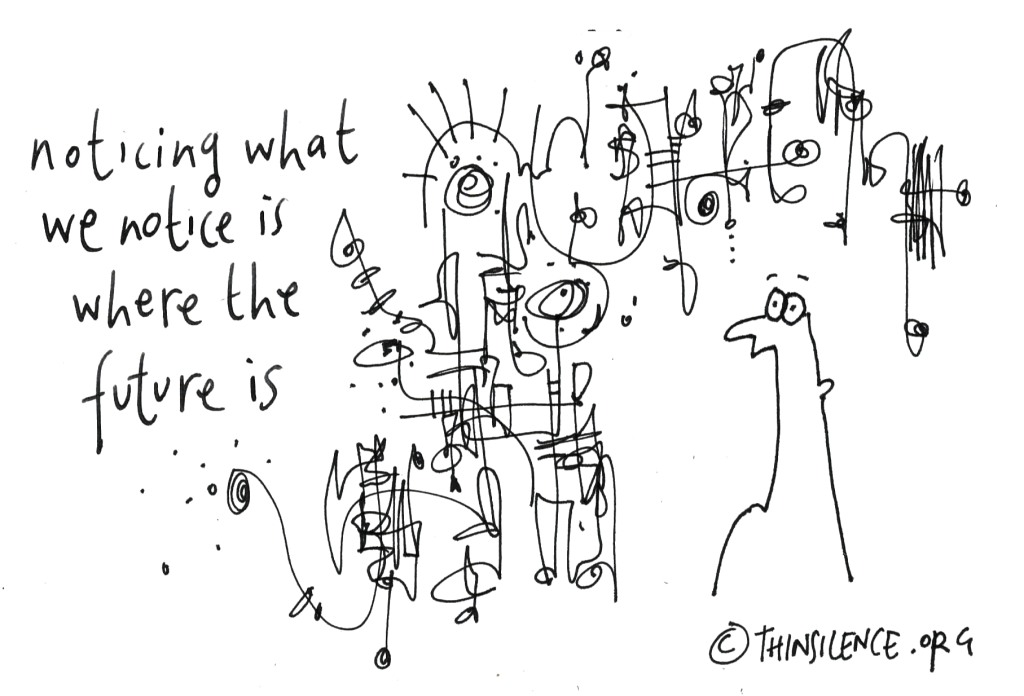 noticing what
we notice is
where the
future is
© THINSILENCE.ORG